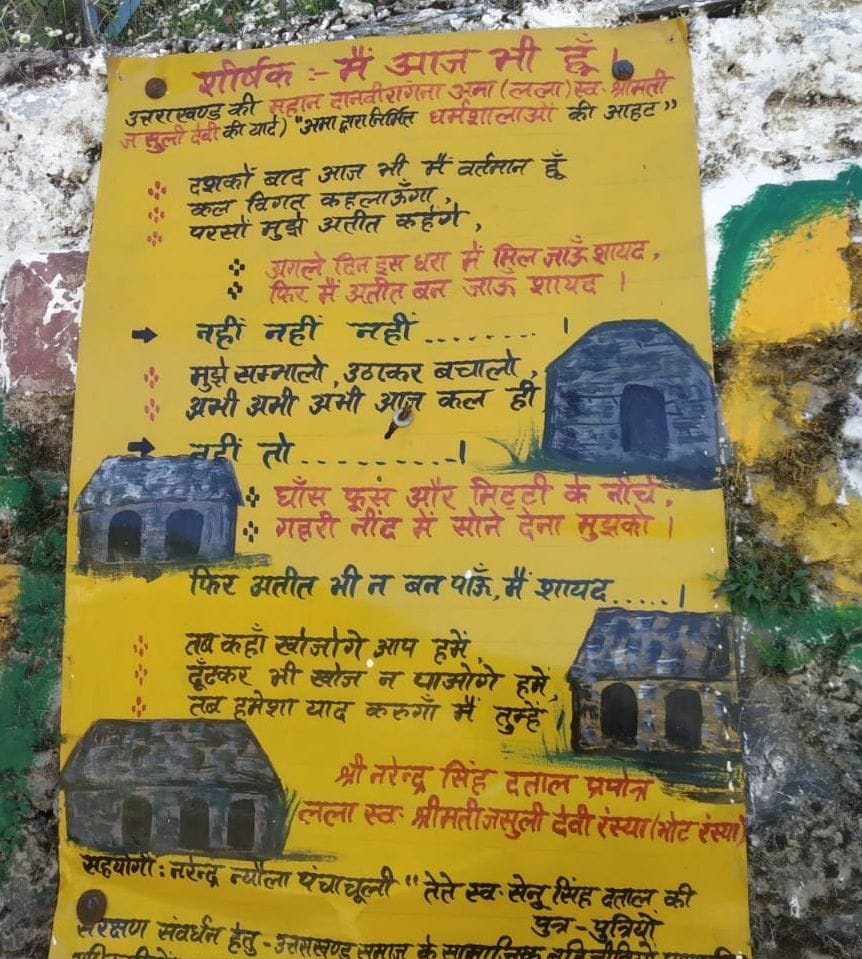 शीर्षक :- मैं आज भी हूँ।
उत्तराखण्ड की महान दानवीरांगना अमा (लला) स्व. श्रीमती
जसुली देवी की यादें) "अमा द्वारा निर्मित धर्मशालाओं की आहट"
दशकों बाद आज भी मैं वर्तमान हूँ
कल विगत कहलाऊँगा,
परसों मुझे अतीत कहेंगे,
अगले दिन इस धरा में मिल जाऊँ शायद,
फिर मैं अतीत बन जाऊँ शायद ।
नहीं नहीं नहीं ........ ।
मुझे सम्भालो, उठाकर बचालो,
अभी अभी अभी आज कल ही
नहीं तो ..........।
घाँस फूस और मिट्टी के नीचे,
गहरी नींद में सोने देना मुझको ।
फिर अतीत भी न बन पाऊँ, मैं शायद.....।
तब कहाँ खोजोगे आप हमें,
ढूँढकर भी खोज न पाओगे हमें,
तब हमेशा याद करुगाँ मैं तुम्हें
श्री नरेन्द्र सिंह दताल प्रपौत्र
लला स्व. श्रीमती जसुली देवी रंस्या (भोट रंस्या)
सहयोगी : नरेन्द्र न्यौला पंचाचूली "तेते स्व. सेनु सिंह दताल की
पुत्र - पुत्रियों
संरक्षण संवर्धन हेतु - उत्तराखण्ड समाज के सामाजिक